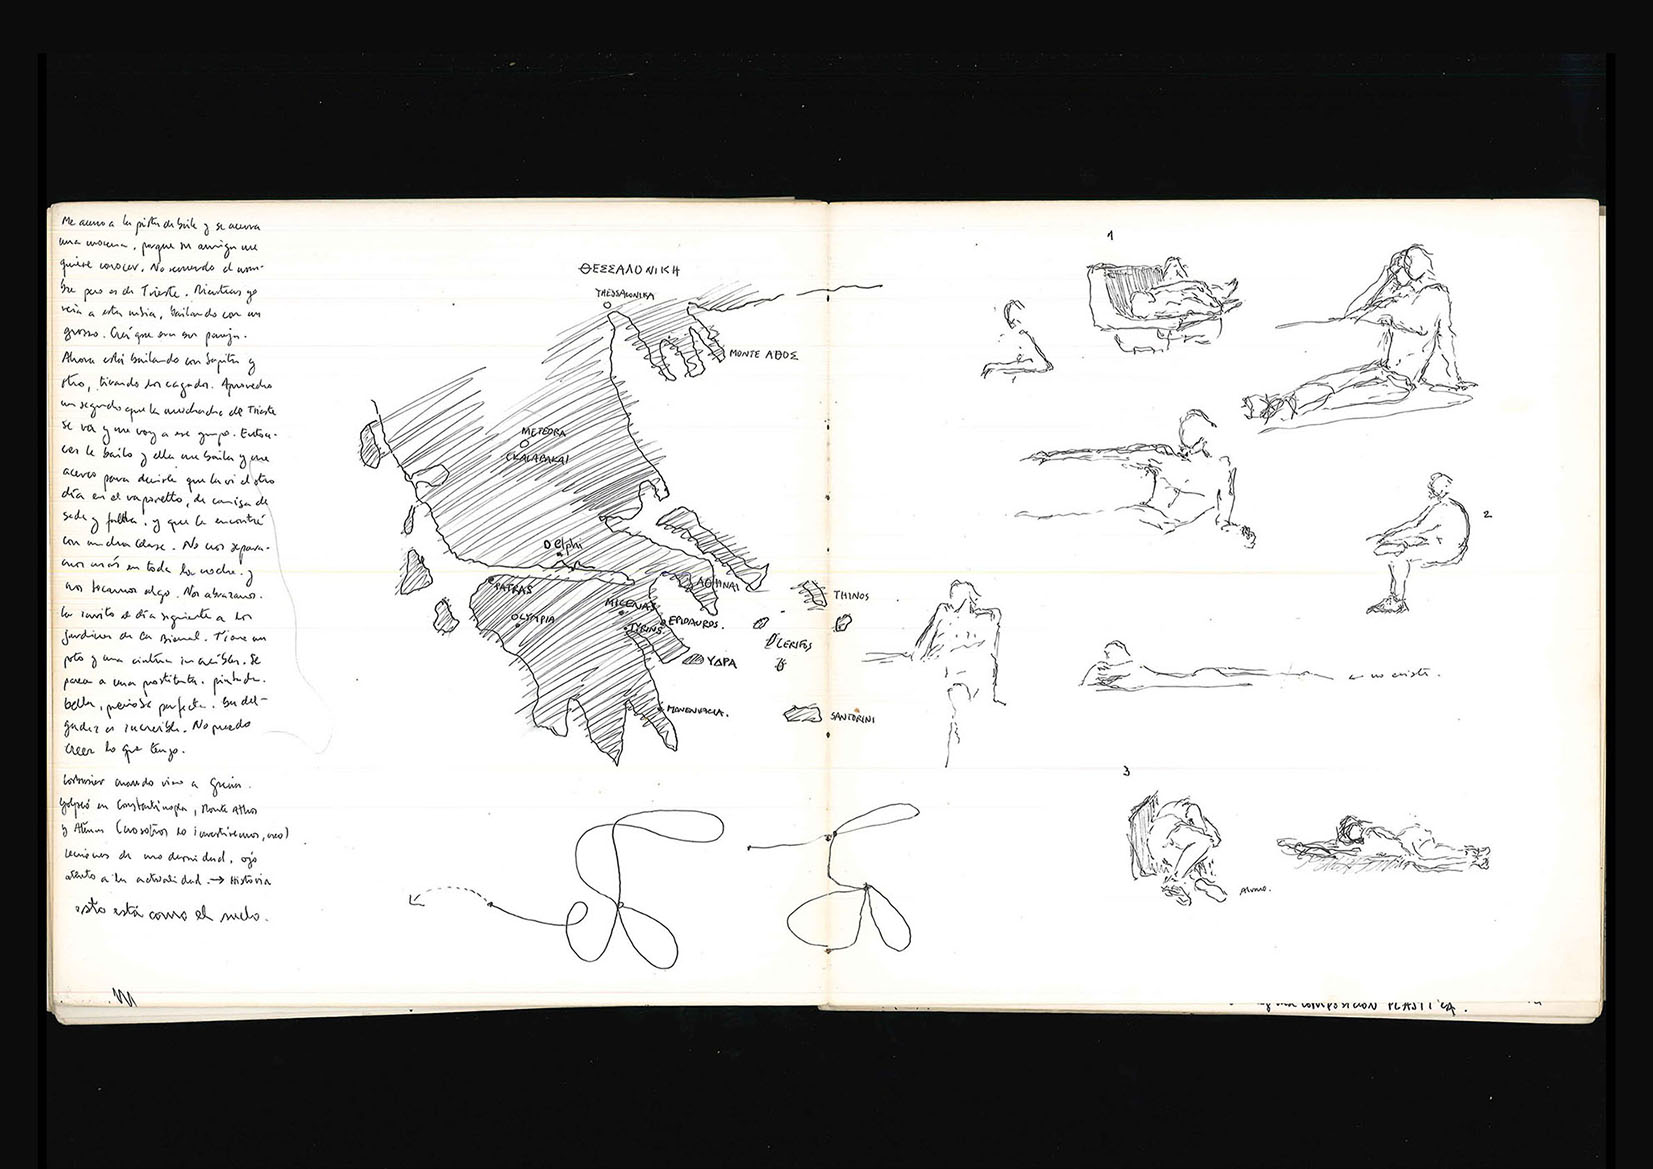 Me acerco a la pista de baile y se acerca
una morena, porque su amiga me
quiere conocer. No recuerdo el nom-
bre pero es de Trieste. Mientras yo
veía a esta rubia, bailando con un
grosso. Creí que eran pareja.
Ahora está bailando con y
otro, tirando los cagados. Aprovecho
un segundo que la muchacha de Trieste
se va y me voy a ese grupo. Enton-
ces le bailo y ella me baila y me
acerco para decirle que la vi el otro
día en el vaporetto, de camisa de
seda y falda. y que la encontré
con mucha clase. No nos separa-
mos más en toda la noche. y
nos tocamos algo. Nos abrazamos.
La invito el día siguiente a los
jardines de la Bienal. Tiene un
poto y una cintura increíbles. Se
parece a una prostituta. pintada.
bella, perfecta. Su del-
gadez es increíble. No puedo
creer lo que tengo.
Corbusier cuando vino a Grecia.
golpeó en Constantinopla, Monte Athos
y Atenas (nosotros lo invertiremos, creo)
lecciones de modernidad. ojo
atento a la actualidad. → Historia
esto está como el suelo.
ΘΕΣΣΑΛΟΝΙΚΗ
THESSALONIKA
MONTE ΑΘΟΣ
METEORA
(KALABAKA)
Delphi
PATRAS
ΑΘΗΝΑΙ
MICENAS
OLYMPIA
TYRINS.
EPIDAUROS.
ΥΔΡΑ
MONENVACIA.
THINOS
CERIFOS
SANTORINI
1
2
← no existe.
3
Alvaro.
COMPOSICION PLASTICA.